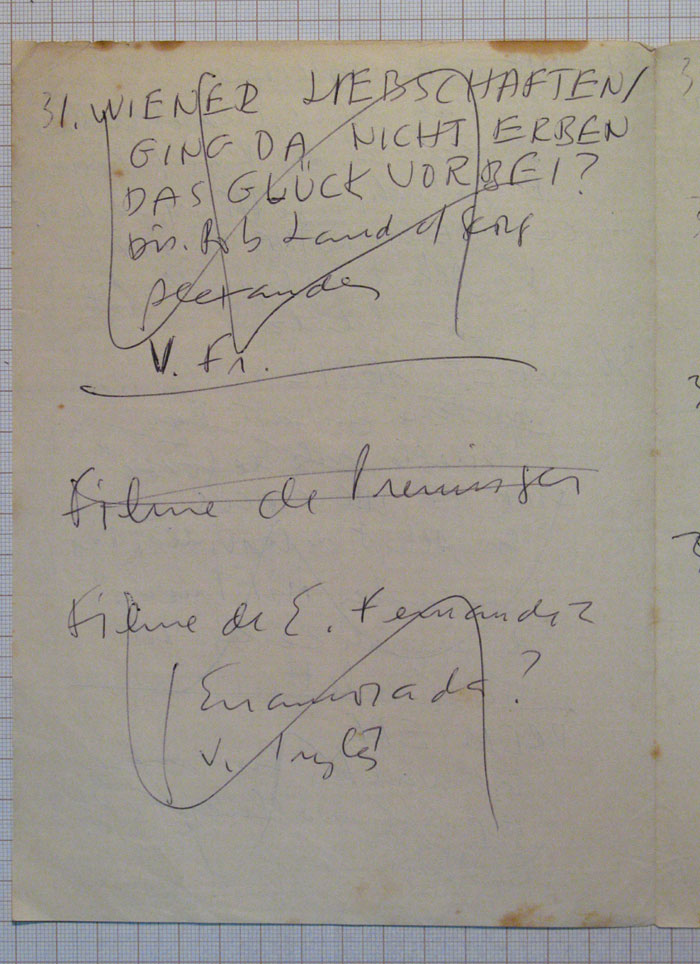 31. WIENER LIEBSCHAFTEN/
GING DA NICHT ERBEN
DAS GLÜCK VORBEI?
Dir. Rob Land &
Alexander
V. Fr.
Filme de Preminger
Filme de E. Fernandez
Enamorada?
V. Inglês
3